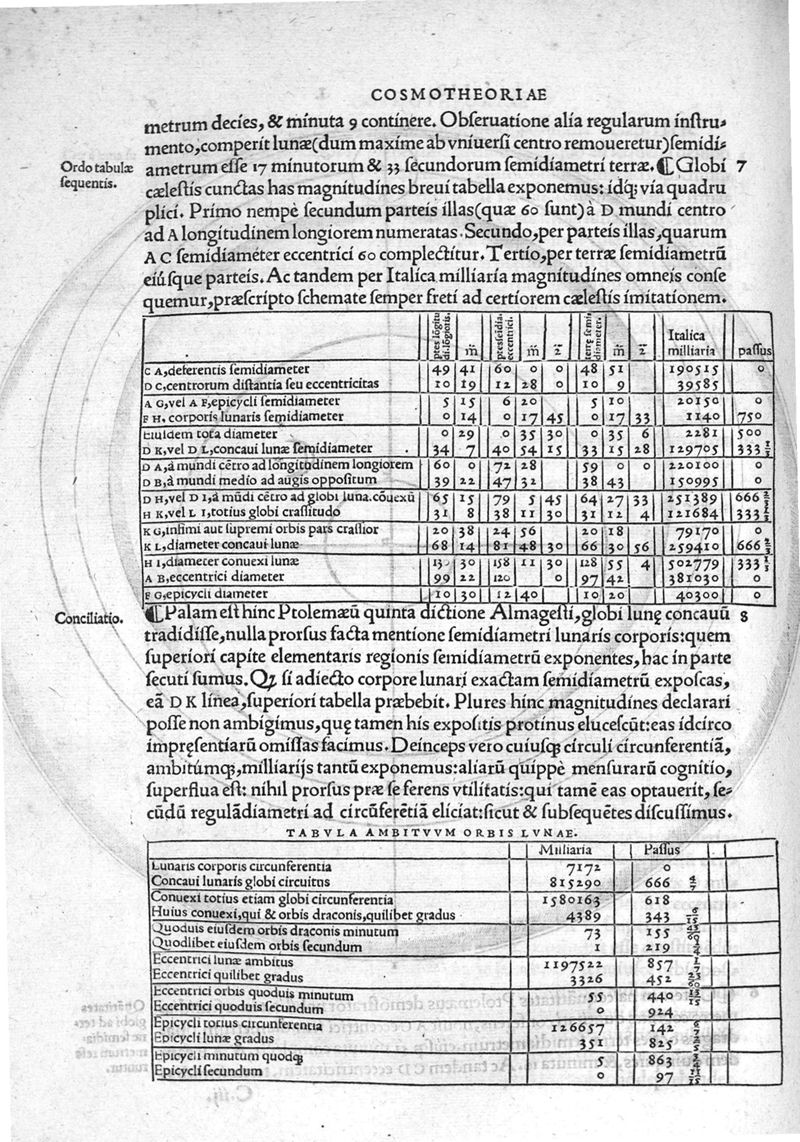 COSMOTHEORIAE
metrum decíes, & mínuta 9 contínere. Obſeruatíone alía regularum inſtru-
mento, comperít lunæ (dum maxíme ab vníuerſi centro remoueretur) ſemidí-
Ordo tabulæ ſequentis.
ametrum eſſe 17 mínutorum & 33 ſecundorum ſemídíametrí terræ. ¶ Globí 7
cæleſtís cunctas has magnítudínes breuí tabella exponemus: idq; vía quadru
plící. Prímo nempè ſecundum parteís íllas (quæ 60 ſunt) à D mundí centro
ad A longítudínem longíorem numeratas. Secundo, per parteís íllas, quarum
A C ſemídíaméter eccentrící 60 complectítur. Tertío, per terræ ſemídíametrū
eíúſque parteís. Ac tandem per Italíca míllíaría magnítudínes omneís conſe
quemur, præſcrípto ſchemate ſemper fretí ad certíorem cæleſtís ímítatíonem.
ptes lōgitu di. lōgioris. | m̄ | ptes ſeidia. eccentrici. | m̄ | 2̄ | terrę ſemi diameter. | m̄ | 2̄ | Italica milliaria | paſſus
C A, deferentis ſemidiameter 49 41 60 0 0 48 51 190515 0
D C, centrorum diſtantia ſeu eccentricitas 10 19 12 28 0 10 9 39585
A G, vel A F, epicycli ſemidiameter 5 15 6 20 5 10 20150 0
F H, corporis lunaris ſemidiameter 0 14 0 17 45 0 17 33 1140 750
Eiuſdem tota diameter 0 29 0 35 30 0 35 6 2281 500
D K, vel D L, concaui lunæ ſemidiameter 34 7 40 54 15 33 15 28 129705 333 1/3
D A, à mundi cētro ad lōngitudinem longiorem 60 0 72 28 59 0 0 220100 0
D B, à mundi medio ad augis oppoſitum 39 22 47 32 38 43 150995 0
D H, vel D I, à mūdi cētro ad globi luna. cōuexū 65 15 79 5 45 64 27 33 251389 666 2/3
H K, vel L I, totius globi craſſitudo 31 8 38 11 30 31 12 4 121684 333 1/3
K G, infimi aut ſupremi orbis pars craſſior 20 38 24 56 20 18 79170 0
K L, diameter concaui lunæ 68 14 81 48 30 66 30 56 259410 666 2/3
H I, diameter conuexi lunæ 130 30 158 11 30 128 55 4 502779 333 1/3
A B, eccentrici diameter 99 22 120 0 97 42 381030 0
F G, epicycli diameter 10 30 12 40 10 20 40300 0
Conciliatio.
¶ Palam eſt hínc Ptolemæū quínta díctíone Almageſtí, globí lunę concauū 8
tradídíſſe, nulla prorſus facta mentíone ſemídíametrí lunarís corporís: quem
ſuperíorí capíte elementarís regíonís ſemídíametrū exponentes, hac ín parte
ſecutí ſumus. Q; ſí adíecto corpore lunarí exactam ſemídíametrū expoſcas,
eā D K línea, ſuperíorí tabella præbebít. Plures hínc magnítudínes declararí
poſſe non ambígímus, quę tamen hís expoſítís protínus eluceſcūt: eas ídcírco
ímpręſentíarū omíſſas facímus. Deínceps vero cuíuſq; círculí círcunferentíā,
ambítúmq;, míllíaríjs tantū exponemus: alíarū quíppè menſurarū cognítío,
ſuperflua eſt: níhíl prorſus præ ſe ferens vtílítatís: quí tamē eas optauerít, ſe-
cūdū regulā díametrí ad círcūferētíā elícíat: ſícut & ſubſequētes díſcuſſímus.
TABVLA AMBITVVM ORBIS LVNAE.
Milliaria Paſſus
Lunaris corporis circunferentia 7172 0
Concaui lunaris globi circuitus 815290 666 4/7
Conuexi totius etiam globi circunferentia 1580163 618
Huius conuexi, qui & orbis draconis, quilibet gradus 4389 343 6/15
Quoduis eiuſdem orbis draconis minutum 73 155 43/60
Quodlibet eiuſdem orbis ſecundum 1 219 3/4
Eccentrici lunæ ambitus 1197522 857 1/7
Eccentrici quilibet gradus 3326 452 23/60
Eccentrici orbis quoduis minutum 55 440 13/15
Eccentrici quoduis ſecundum 0 924
Epicycli totius circunferentia 126657 142 6/7
Epicycli lunæ gradus 351 825 2/5
Epicycli minutum quodq; 5 863 3/4
Epicycli ſecundum 0 97 11/15
C.iij.